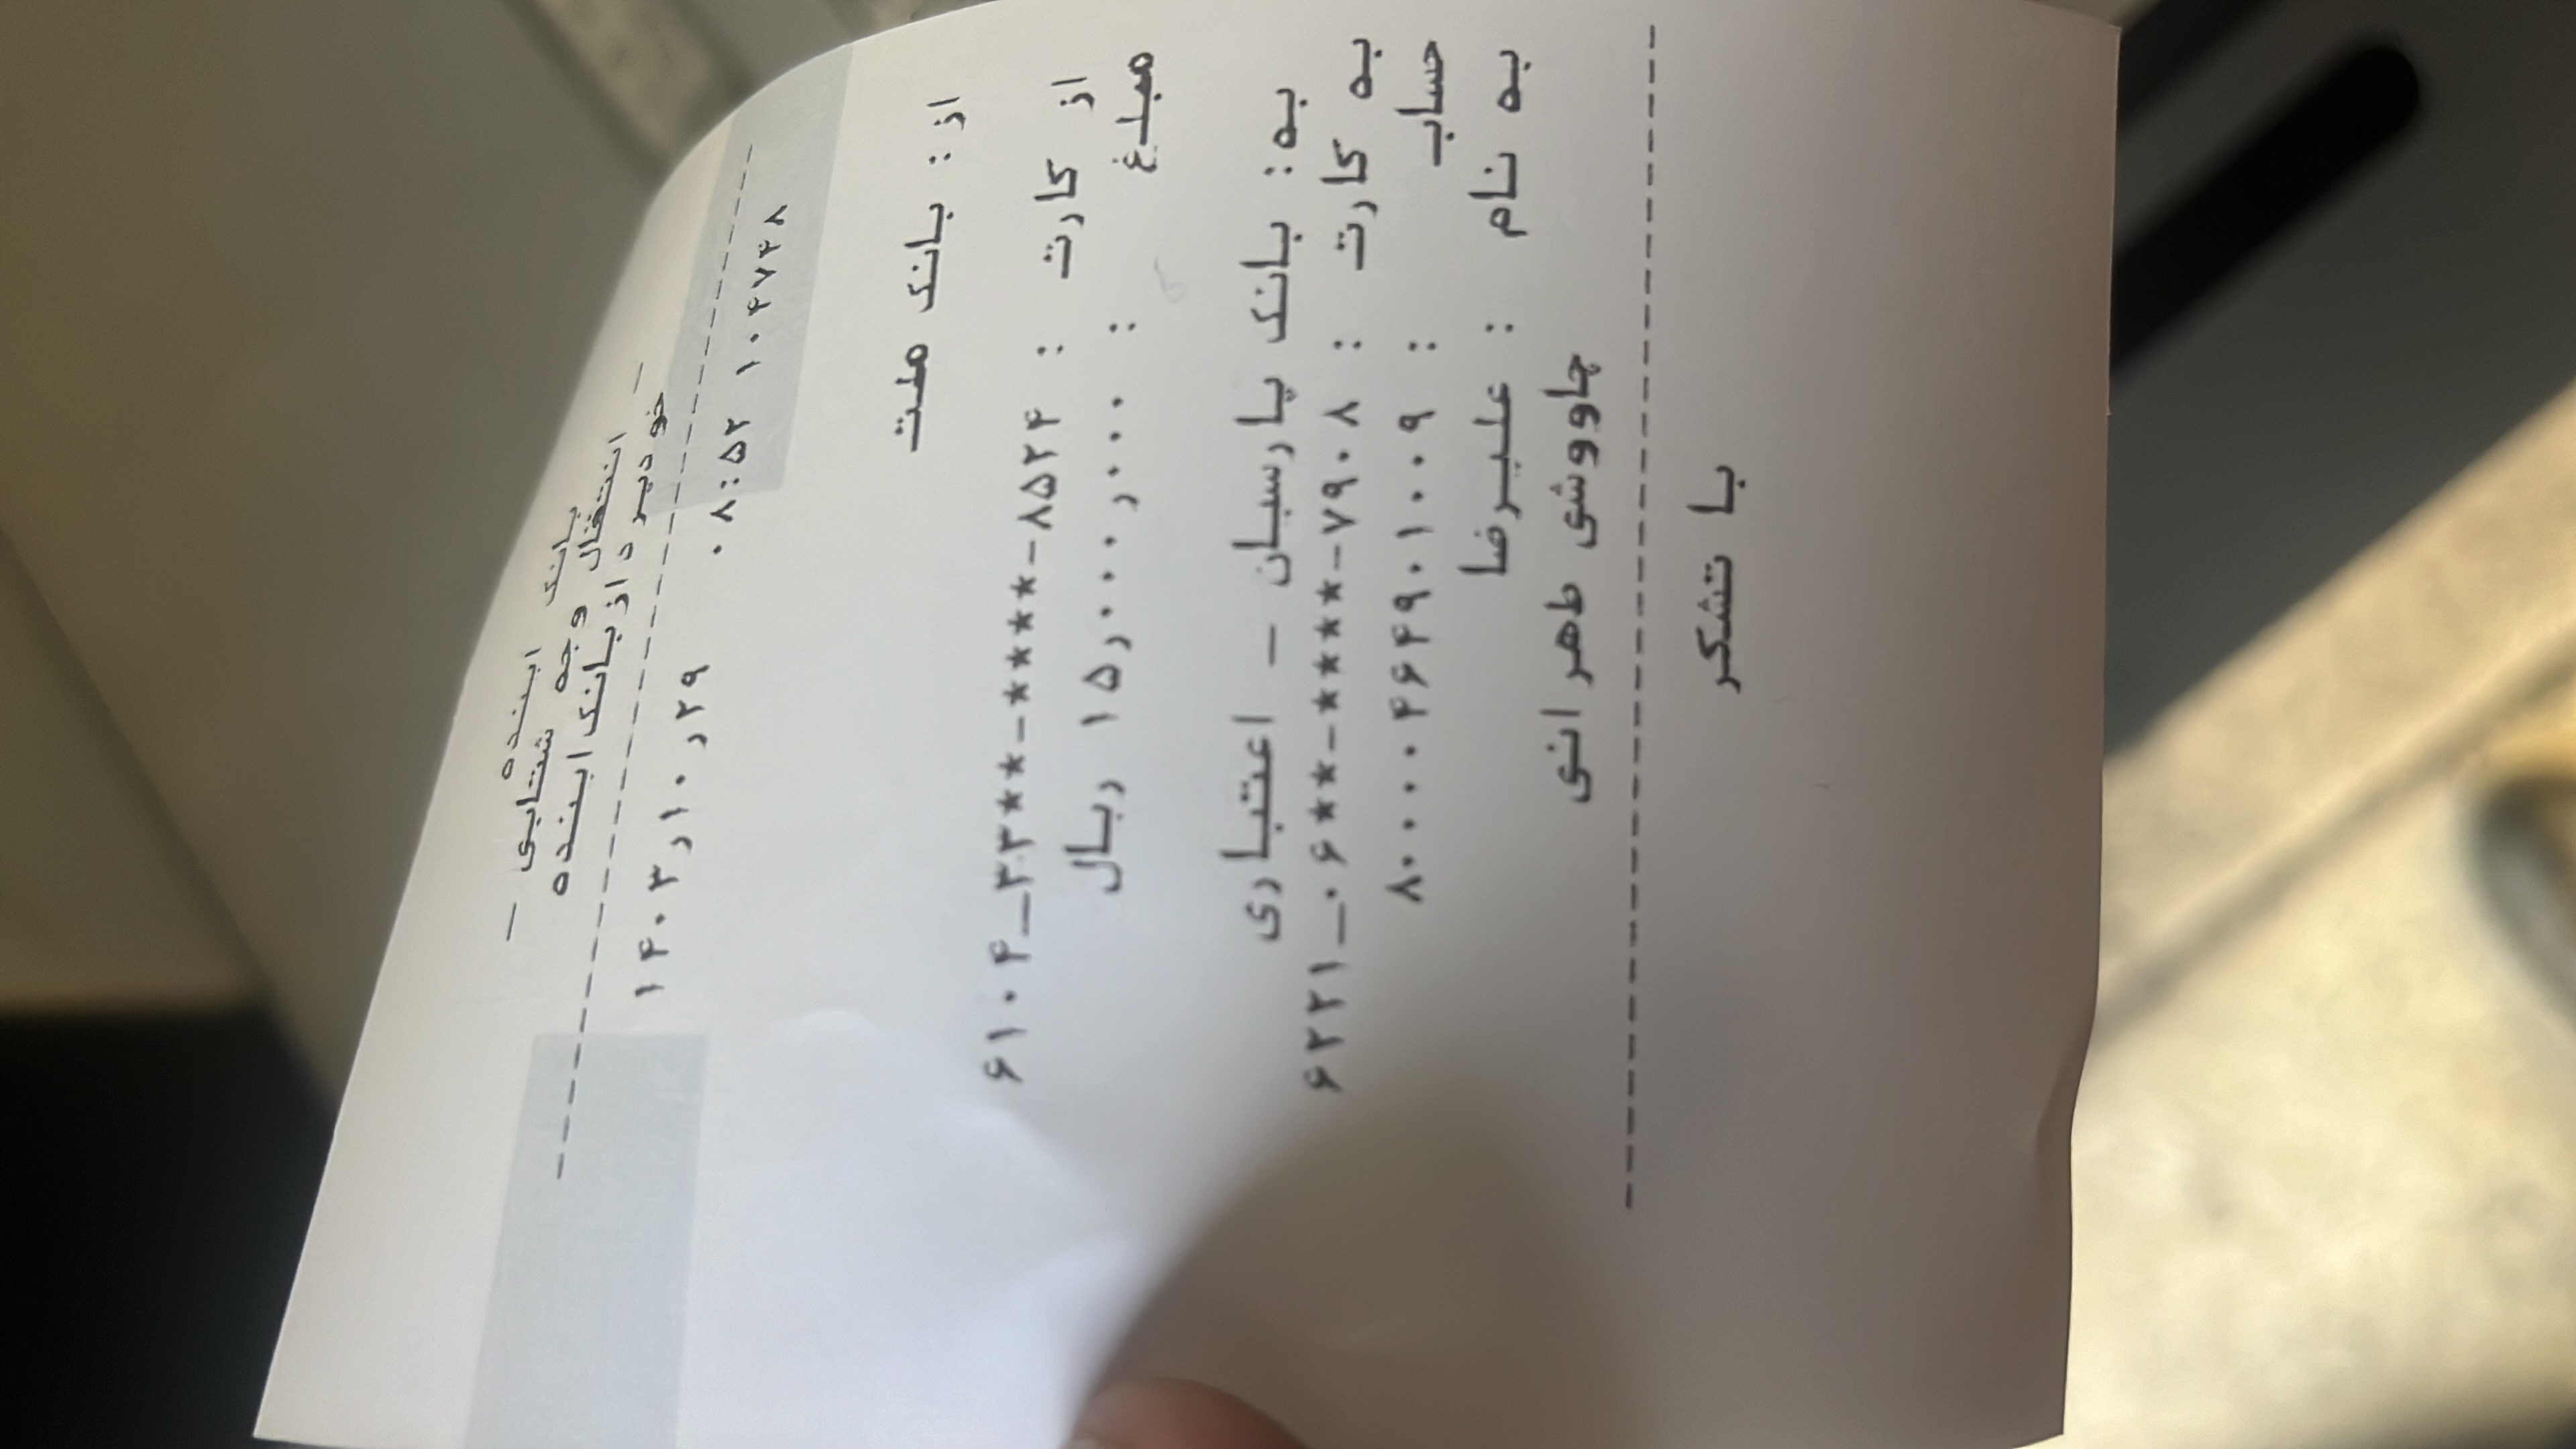 بانک اینده
انتقال وجه شتابی
خودپرداز بانک اینده
۱۰۴۷۳۸ ۰۸:۵۲ ۱۴۰۳٫۱۰٫۲۹
از: بانک ملت
از کارت : ۶۱۰۴_۳۳**-****-۸۵۲۴
مبلغ : ۱۵٫۰۰۰٫۰۰۰ ریال
به: بانک پارسیان - اعتباری
به کارت : ۶۲۲۱_۰۶**-****-۷۹۰۸
حساب : ۸۰۰۰۰۴۶۴۹۰۱۰۰۹
به نام : علیرضا
چاووشی طهرانی
با تشکر